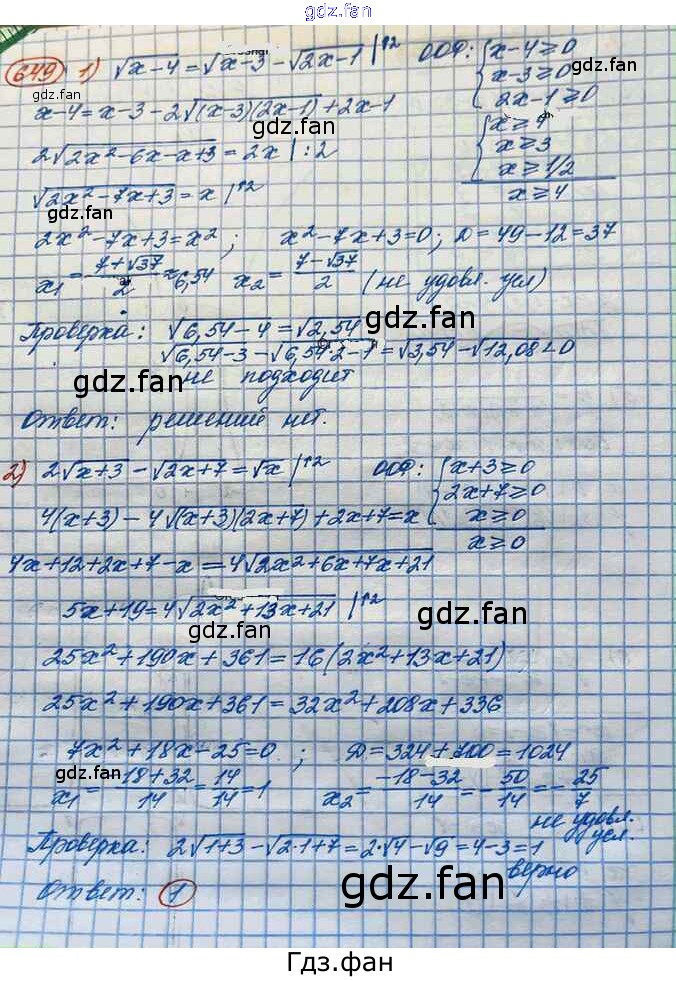 gdz.fan
649 1) √x-4 = √x-3 - √2x-1 |↑2 ООФ: {x-4≥0
gdz.fan x-3≥0
x-4=x-3-2√(x-3)(2x-1)+2x-1 2x-1≥0
gdz.fan
2√2x²-6x-x+3 = 2x |:2 {x≥4
x≥3
√2x²-7x+3 = x |↑2 x≥1/2
gdz.fan x≥4
2x²-7x+3=x²; x²-7x+3=0; D=49-12=37
x₁ = (7+√37)/2 ≈ 6,54 x₂ = (7-√37)/2 (не удовл. усл)
Проверка: √6,54-4 = √2,54
gdz.fan
√6,54-3 - √6,54·2-1 = √3,54 - √12,08 < 0
gdz.fan
не подходит
Ответ: решений нет.
2) 2√x+3 - √2x+7 = √x |↑2 ООФ: {x+3≥0
2x+7≥0
4(x+3)-4√(x+3)(2x+7)+2x+7=x x≥0
x≥0
4x+12+2x+7-x=4√2x²+6x+7x+21
5x+19=4√2x²+13x+21 |↑2
gdz.fan gdz.fan
25x²+190x+361=16(2x²+13x+21)
25x²+190x+361=32x²+208x+336
7x²+18x-25=0; D=324+700=1024
gdz.fan
x₁ = (-18+32)/14 = 14/14 = 1 x₂ = (-18-32)/14 = -50/14 = -25/7
не удовл.
усл.
Проверка: 2√1+3 - √2·1+7 = 2·√4 - √9 = 4-3=1
верно
Ответ: 1
gdz.fan
Гдз.фан